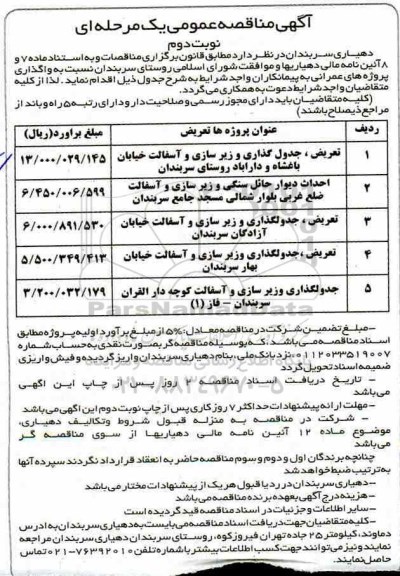 آگهی مناقصه عمومی یک مرحله ای
نوبت دوم
دهیاری سربندان در نظر دارد مطابق قانون برگزاری مناقصات و به استناد ماده ۷ و
۸ آئین نامه مالی دهیاریها و موافقت شورای اسلامی روستای سربندان نسبت به واگذاری
پروژه های عمرانی به پیمانکاران واجد شرایط به شرح جدول ذیل اقدام نماید. لذا از کلیه
متقاضیان واجد شرایط دعوت به همکاری می گردد.
(کلیه متقاضیان باید دارای مجوز رسمی و صلاحیت دار و دارای رتبه ۵ راه و باند از
مراجع ذیصلاح باشند)
ردیف	عنوان پروژه ها تعریض	مبلغ براورد(ریال)
۱	تعریض ، جدول گذاری و زیر سازی و آسفالت خیابان	۱۳/۰۰۰/۰۲۹/۱۴۵
باغشاه و داراباد روستای سربندان
۲	احداث دیوار حائل سنگی و زیر سازی و آسفالت	۶/۴۵۰/۰۰۶/۵۹۹
ضلع غربی بلوار شمالی مسجد جامع سربندان
۳	تعریض ، جدولگذاری و زیر سازی و آسفالت خیابان	۶/۰۰۰/۸۹۱/۵۳۰
آزادگان سربندان
۴	تعریض ،جدولگذاری و زیر سازی و آسفالت خیابان	۵/۵۰۰/۳۴۹/۴۱۳
بهار سربندان
۵	جدولگذاری وزیر سازی و آسفالت کوچه دار القران	۳/۲۰۰/۰۳۲/۱۷۹
سربندان – فاز (۱)
-مبلغ تضمین شرکت در مناقصه معادل: ۵% از مبلغ برآورد اولیه پروژه مطابق
اسناد مناقصه می باشد، که بوسیله مناقصه گر بصورت نقدی به حساب شماره
۰۱۱۲۰۳۳۵۱۹۰۰۷ نزد بانک ملی، بنام دهیاری سربندان واریز گردیده و فیش واریزی
ضمیمه اسناد تحویل گردد
- تاریخ دریافت اسناد مناقصه ۲ روز پس از چاپ این آگهی
می باشد
-مهلت ارائه پیشنهادات حداکثر ۷ روز کاری پس از چاپ نوبت دوم این آگهی می باشد
- شرکت در مناقصه به منزله قبول شروط و تکالیف دهیاری،
موضوع ماده ۱۲ آئین نامه مالی دهیاریها از سوی مناقصه گر
می باشد
چنانچه برندگان اول و دوم و سوم مناقصه حاضر به انعقاد قرارداد نگردند سپرده آنها
به ترتیب ضبط خواهد شد
- دهیاری سربندان در رد یا قبول هر یک از پیشنهادات مختار می باشد
-هزینه درج آگهی بعهده برنده مناقصه می باشد
- سایر اطلاعات و جزئیات در اسناد مناقصه قید گردیده است
-کلیه متقاضیان جهت دریافت اسناد مناقصه می بایست به دهیاری سربندان به ادرس
دماوند، کیلومتر ۲۵ جاده تهران فیروزکوه، روستای سربندان دهیاری سربندان مراجعه
نمایند و نیز می توانند جهت کسب اطلاعات بیشتر با شماره تلفن ۷۶۳۹۲۰۱۰-۰۲۱ تماس
حاصل نمایند.